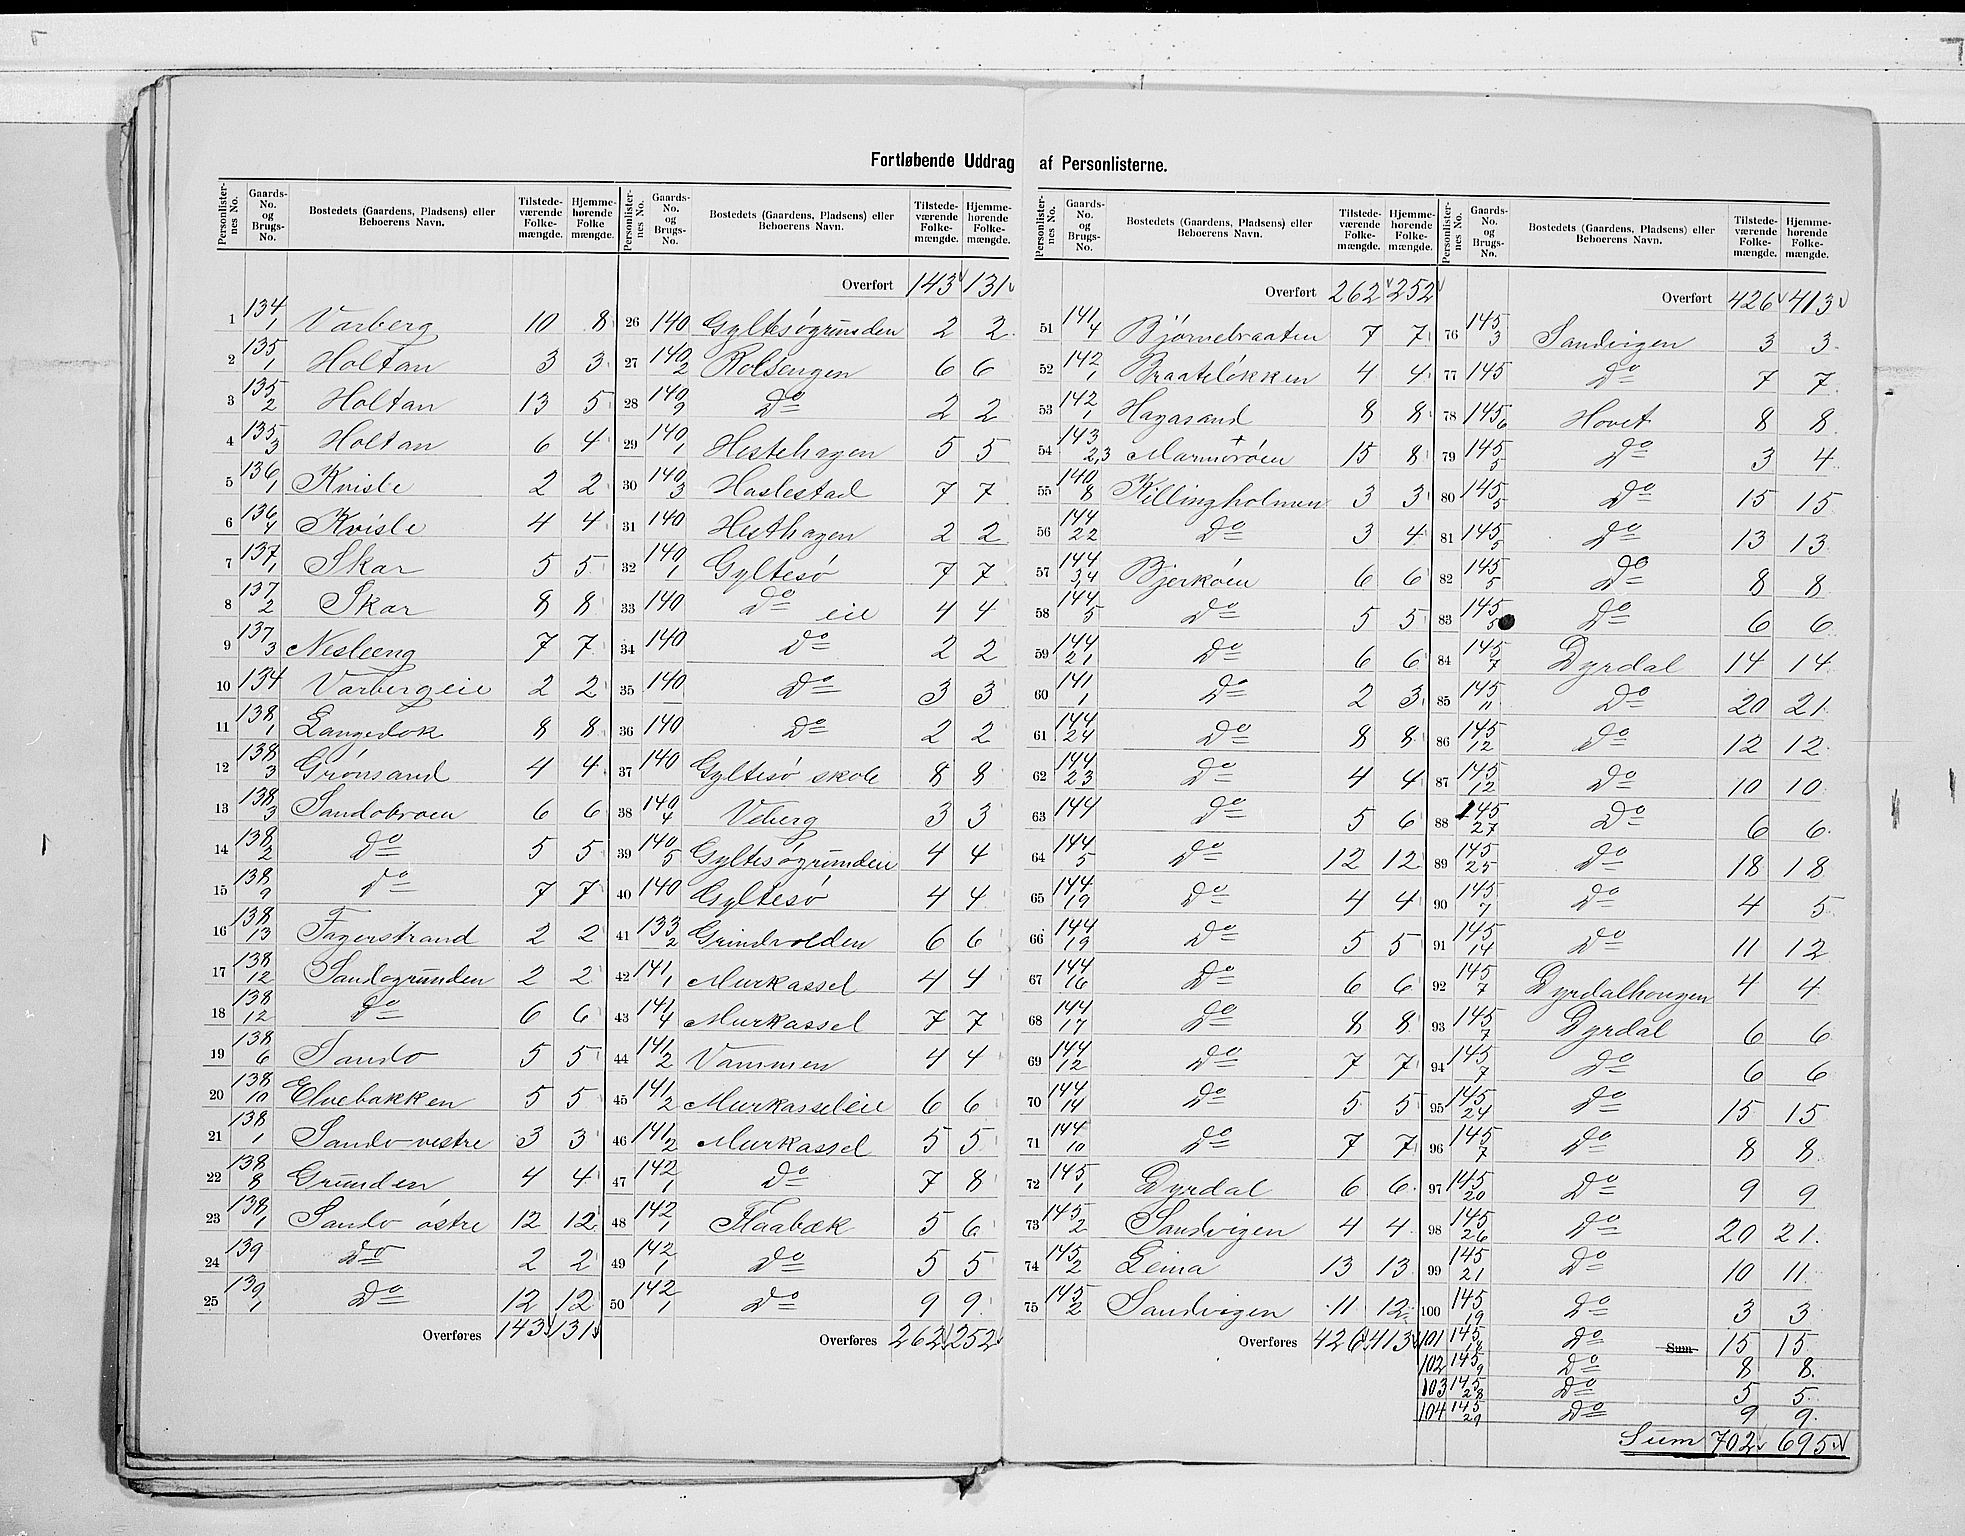 Fortløbende Uddrag af Personlisterne.
Personlisternes No. Gaards-No. og Brugs-No. Bostedets (Gaardens, Pladsens) eller Beboerens Navn. Tilstedeværende Folkemængde. Hjemmehørende Folkemængde.
1 134/1 Varberg 10 8
2 135/1 Holtan 3 3
3 135/2 Holtan 13 5
4 135/3 Holtan 6 4
5 136/1 Kvisle 2 2
6 136/4 Kvisle 4 4
7 137/1 Skar 5 5
8 137/2 Skar 8 8
9 137/3 Neslieng 7 7
10 134 Varbergeie 2 2
11 138/1 Langedok 8 8
12 138/3 Grönsand 4 4
13 138/3 Sandobroen 6 6
14 138/2 Do 5 5
15 138/9 Do 7 7
16 138/13 Fagerstrand 2 2
17 138/12 Sandogrunden 2 2
18 138/12 Do 6 6
19 138/6 Sando 5 5
20 138/10 Elvebakken 5 5
21 138/1 Sando vestre 3 3
22 138/8 Grunden 4 4
23 138/1 Sando östre 12 12
24 139 Do 2 2
25 139/1 Do 12 12
Overføres 143 131
Personlisternes No. Gaards-No. og Brugs-No. Bostedets (Gaardens, Pladsens) eller Beboerens Navn. Tilstedeværende Folkemængde. Hjemmehørende Folkemængde.
Overført 143 131
26 140 Gyltesögrunden 2 2
27 140/2 Rolsengen 6 6
28 140/9 Do 2 2
29 140/1 Hestehagen 5 5
30 140/3 Haslestad 7 7
31 140 Hesthagen 2 2
32 140/1 Gyltesö 7 7
33 140 Do eie 4 4
34 140 Do 2 2
35 140 Do 3 3
36 140 Do 2 2
37 140 Gyltesö skole 8 8
38 140/4 Veberg 3 3
39 140/5 Gyltesögrunden 4 4
40 140 Gyltesö 4 4
41 133/2 Grindvolden 6 6
42 141/1 Murkassel 4 4
43 141/4 Murkassel 7 7
44 141/2 Vammen 4 4
45 141/2 Murkasseleie 6 6
46 141/2 Murkassel 5 5
47 142/1 Do 7 8
48 142/1 Flaabæk 5 6
49 142/1 Do 5 5
50 142/1 Do 9 9
Overføres 262 252
Personlisternes No. Gaards-No. og Brugs-No. Bostedets (Gaardens, Pladsens) eller Beboerens Navn. Tilstedeværende Folkemængde. Hjemmehørende Folkemængde.
Overført 262 252
51 141/4 Bjørnebraaten 7 7
52 142/1 Braatelökken 4 4
53 142/1 Hagasand 8 8
54 143/2,3 Marmoröen 15 8
55 140/8 Killingholmen 3 3
56 144/22 Do 3 4
57 144/34 Bjerköen 6 6
58 144/5 Do 5 5
59 144/21 Do 6 6
60 141/1 Do 2 3
61 144/24 Do 8 8
62 144/23 Do 4 4
63 144 Do 5 6
64 144/5 Do 12 12
65 144/19 Do 4 4
66 144/19 Do 5 5
67 144/16 Do 6 6
68 144/17 Do 8 8
69 144/12 Do 7 7
70 144/14 Do 5 5
71 144/10 Do 7 7
72 145/1 Dyrdal 6 6
73 145/2 Sandvigen 4 4
74 145/2 Leina 13 13
75 145/2 Sandvigen 11 12
Overføres 426 413
Personlisternes No. Gaards-No. og Brugs-No. Bostedets (Gaardens, Pladsens) eller Beboerens Navn. Tilstedeværende Folkemængde. Hjemmehørende Folkemængde.
Overført 426 413
76 145/3 Sandvigen 3 3
77 145 Do 7 7
78 145/6 Hovet 8 8
79 145/5 Do 3 4
80 145/5 Do 15 15
81 145/5 Do 13 13
82 145/5 Do 8 8
83 145/5 Do 6 6
84 145/7 Dyrdal 14 14
85 145/11 Do 20 21
86 145/12 Do 12 12
87 145/12 Do 10 10
88 145/27 Do 6 6
89 145/25 Do 18 18
90 145/7 Do 4 5
91 145/14 Do 11 12
92 145/7 Dyrdalhougen 4 4
93 145/7 Dyrdal 6 6
94 145/7 Do 6 6
95 145/24 Do 15 15
96 145/7 Do 8 8
97 145/20 Do 9 9
98 145/26 Do 20 21
99 145/21 Do 10 11
100 145/19 Do 3 3
101 145/18 Do Sum 15 15
102 145/9 Do 8 8
103 145/28 Do 5 5
104 145/29 Do 9 9
Sum 702 695